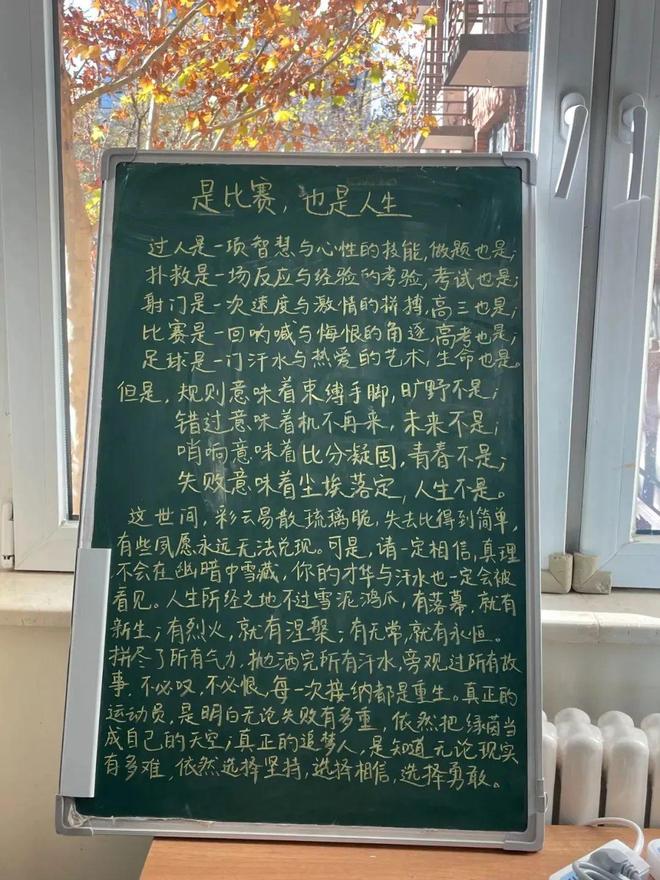 是比赛，也是人生
过人是一项智慧与心性的技能，做题也是；
扑救是一场反应与经验的考验，考试也是；
射门是一次速度与激情的拼搏，高三也是；
比赛是一回呐喊与悔恨的角逐，高考也是；
足球是一门汗水与热爱的艺术，生命也是。
但是，规则意味着束缚手脚，旷野不是；
错过意味着机不再来，未来不是；
哨响意味着比分凝固，青春不是；
失败意味着尘埃落定，人生不是。
这世间，彩云易散琉璃脆，失去比得到简单，
有些夙愿永远无法兑现。可是，请一定相信，真理
不会在幽暗中雪藏，你的才华与汗水也一定会被
看见。人生所经之地不过雪泥鸿爪，有落幕，就有
新生；有烈火，就有涅槃；有无常，就有永恒。
拼尽了所有气力，抛洒完所有汗水，旁观过所有故
事，不必叹，不必恨，每一次接纳都是重生。真正的
运动员，是明白无论失败有多重，依然把绿茵当
成自己的天空；真正的追梦人，是知道无论现实
有多难，依然选择坚持，选择相信，选择勇敢。